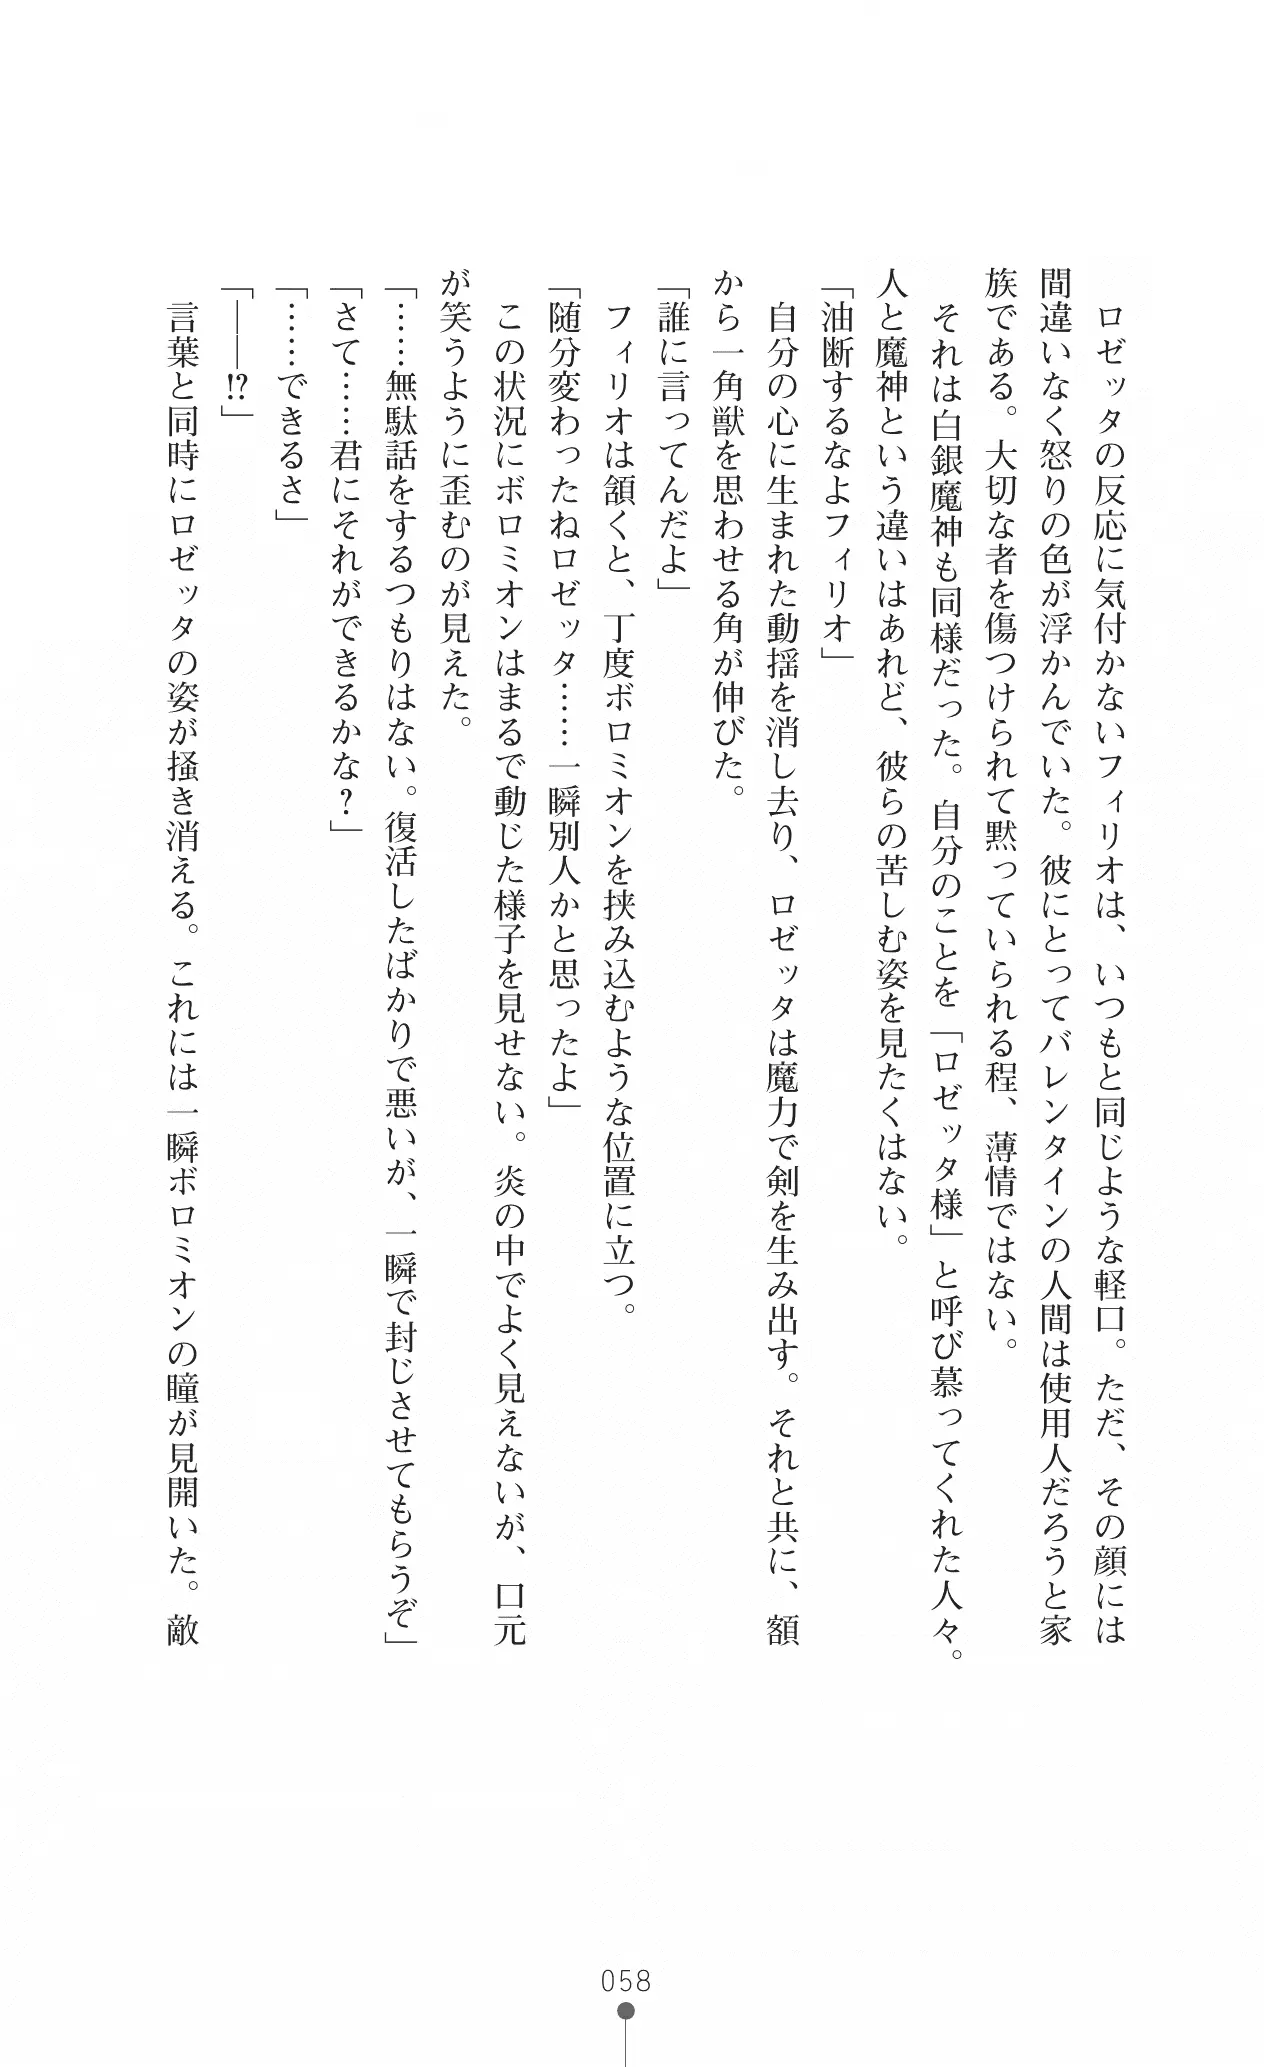 ロゼッタの反応に気付かないフィリオは、いつもと同じような軽口。ただ、その顔には
間違いなく怒りの色が浮かんでいた。彼にとってバレンタインの人間は使用人だろうと家
族である。大切な者を傷つけられて黙っていられる程、薄情ではない。
　それは白銀魔神も同様だった。自分のことを「ロゼッタ様」と呼び慕ってくれた人々。
人と魔神という違いはあれど、彼らの苦しむ姿を見たくはない。
「油断するなよフィリオ」
　自分の心に生まれた動揺を消し去り、ロゼッタは魔力で剣を生み出す。それと共に、額
から一角獣を思わせる角が伸びた。
「誰に言ってんだよ」
　フィリオは頷くと、丁度ボロミオンを挟み込むような位置に立つ。
「随分変わったねロゼッタ……一瞬別人かと思ったよ」
　この状況にボロミオンはまるで動じた様子を見せない。炎の中でよく見えないが、口元
が笑うように歪むのが見えた。
「……無駄話をするつもりはない。復活したばかりで悪いが、一瞬で封じさせてもらうぞ」
「さて……君にそれができるかな？」
「……できるさ」
「――!?」
　言葉と同時にロゼッタの姿が掻き消える。これには一瞬ボロミオンの瞳が見開いた。敵
058